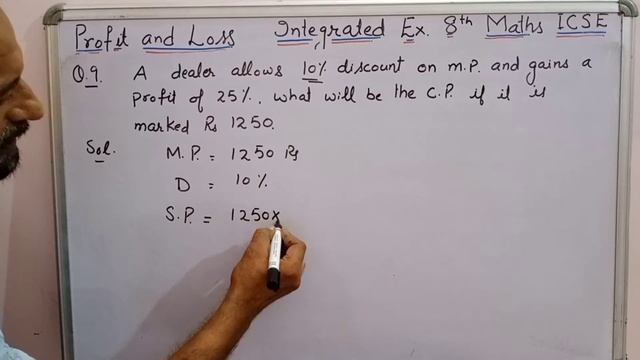 Profit and Loss Integrated Ex. 8th Maths ICSE
Q.9. A dealer allows 10% discount on M.P. and gains a
profit of 25%. what will be the C.P. if it is
marked Rs 1250.
Sol. M.P. = 1250 Rs
D = 10%
S.P. = 1250x